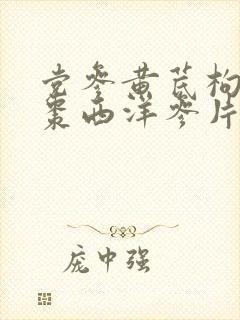 党参黄芪枸
枣西洋参片
庞中强